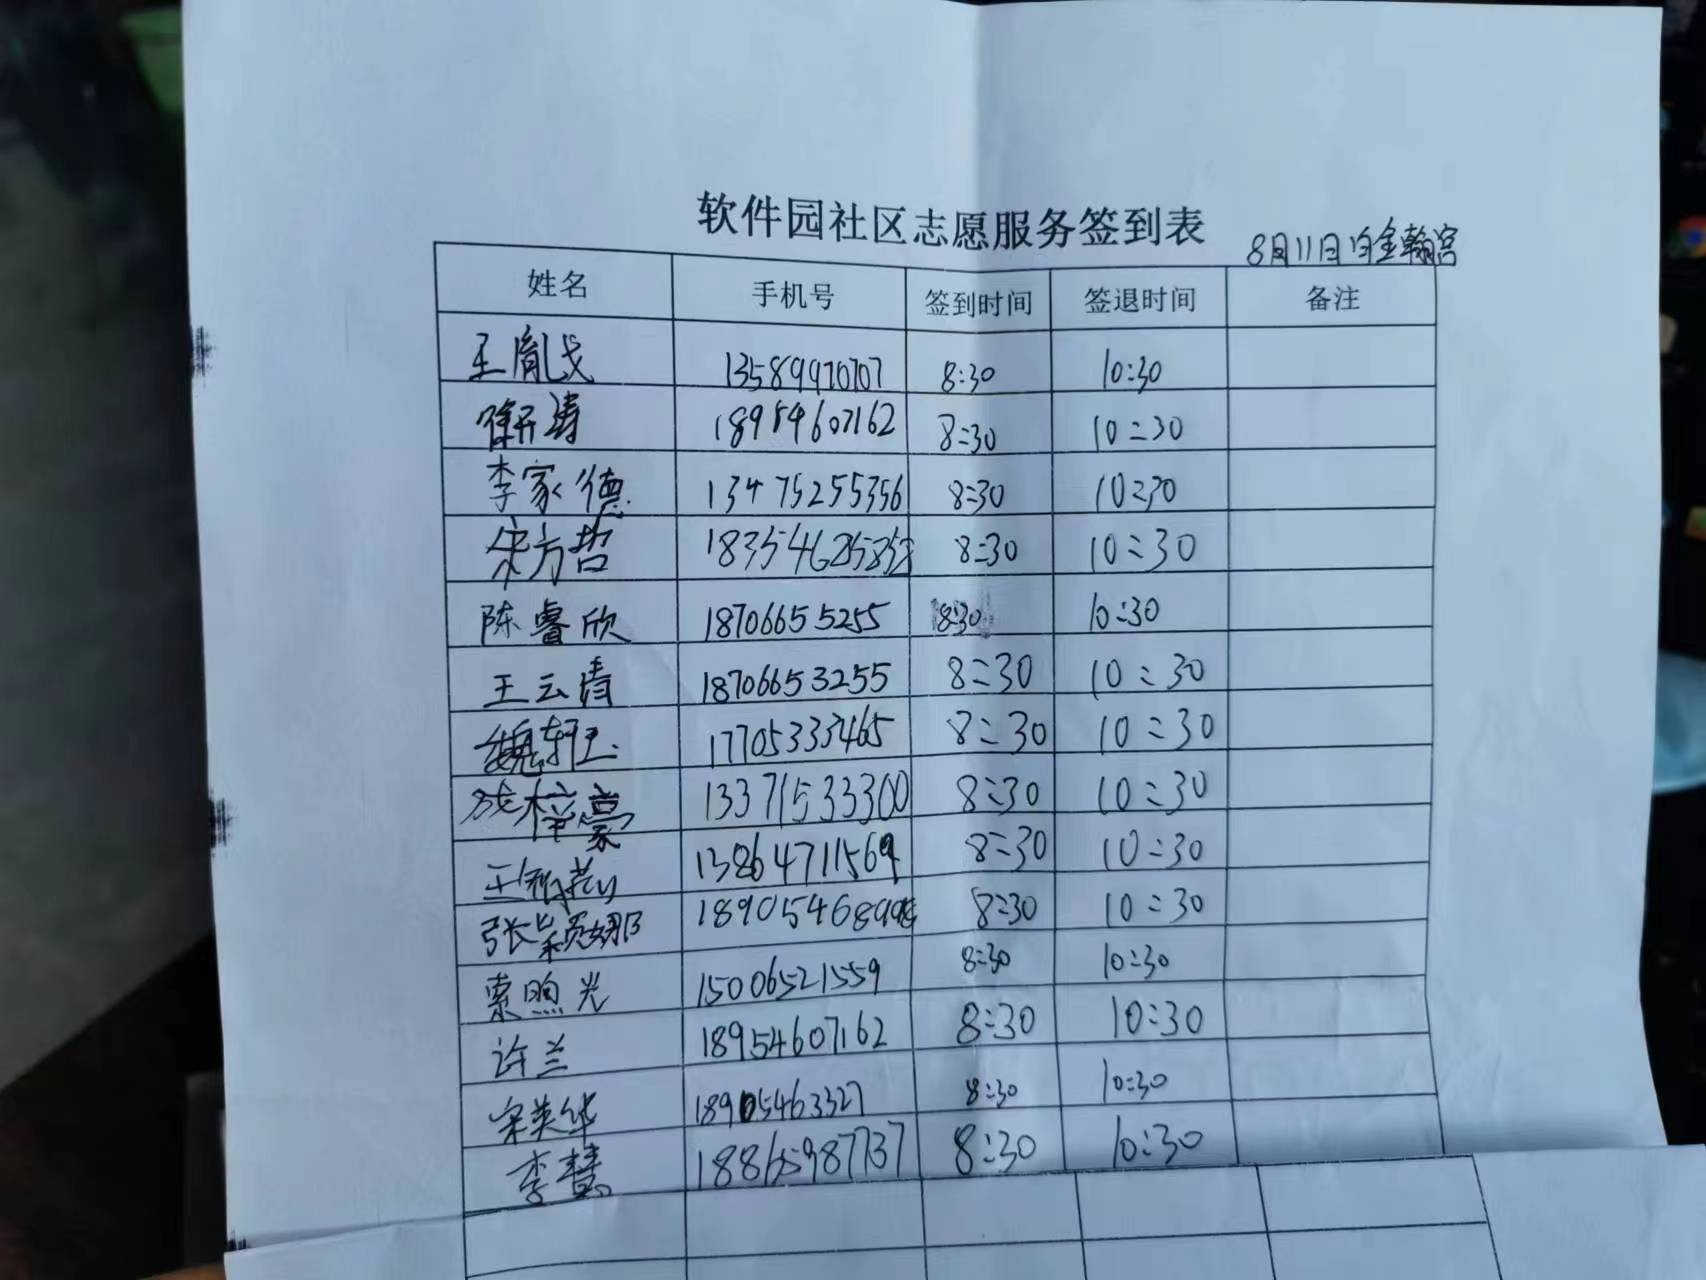 软件园社区志愿服务签到表
8月11日白金翰宫
姓名 手机号 签到时间 签退时间 备注
王胤戈 13589970707 8:30 10:30
徐开涛 18954607162 8:30 10:30
李家德 13475255356 8:30 10:30
宋方哲 8:30 10:30
陈睿欣 18706655255 8:30 10:30
王云清 18706653255 8:30 10:30
魏轩玉 17705333465 8:30 10:30
梓豪 13371533300 8:30 10:30
王 13864711569 8:30 10:30
张紫娜 8:30 10:30
索煦光 15006521559 8:30 10:30
许兰 18954607162 8:30 10:30
宋英华 18905463327 8:30 10:30
李慧 18865987737 8:30 10:30